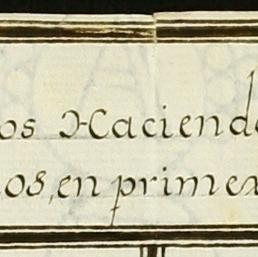 os Haciend
os, en primer